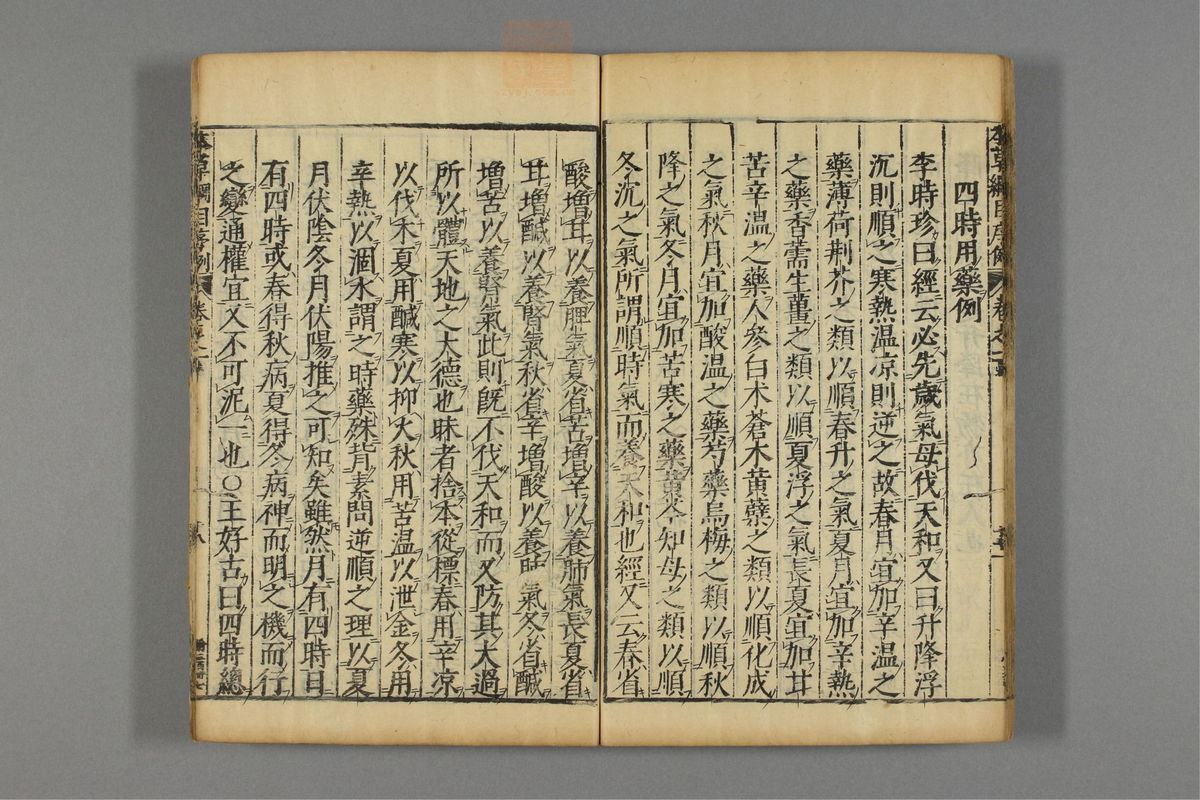 四時用藥例
李時珍曰經云必先歲氣毋伐天和又曰升降浮
沉則順之寒熱温凉則逆之故春月宜加辛温之
藥薄荷荆芥之類以順春升之氣夏月宜加辛熱
之藥香薷生薑之類以順夏浮之氣長夏宜加甘
苦辛温之藥人參白术蒼术黃蘗之類以順化成
之氣秋月宜加酸温之藥芍藥烏梅之類以順秋
降之氣冬月宜加苦寒之藥黃芩知母之類以順
冬沉之氣所謂順時氣而養天和也經又云春省
酸增甘以養脾氣夏省苦增辛以養肺氣長夏省
甘增鹹以養腎氣秋省辛增酸以養肝氣冬省鹹
增苦以養腎氣此則既不伐天和而又防其太過
所以體天地之大德也昧者捨本從標春用辛凉
以伐木夏用鹹寒以抑火秋用苦温以泄金冬用
辛熱以涸水謂之時藥殊背素問逆順之理以夏
月伏陰冬月伏陽推之可知矣雖然月有四時日
有四時或春得秋病夏得冬病神而明之機而行
之變通權宜又不可泥一也○王好古曰四時總
本草綱目序例